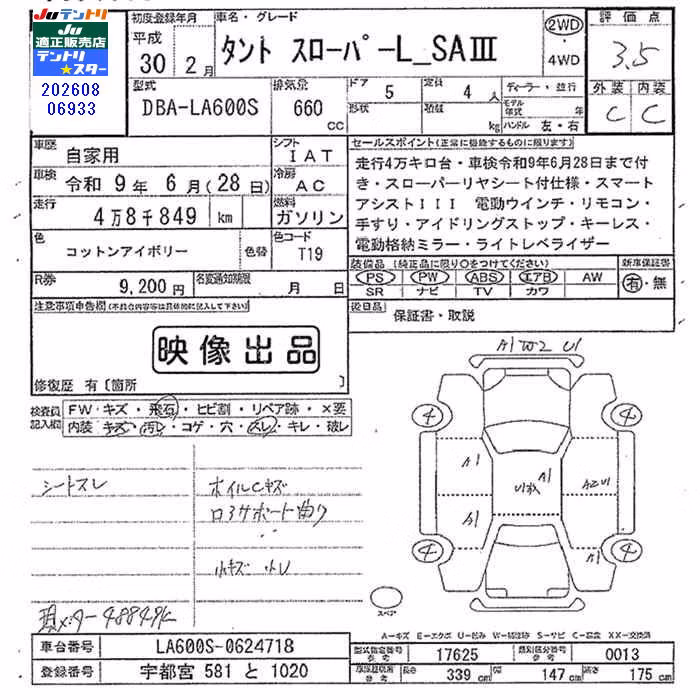 Juテントリ
Ju
適正販売店
テントリ
★スター
202608
06933
初度登録年月
平成
30年 2月
車名・グレード
タント スローパーL_SAⅢ
2WD
・
4WD
評価点
3.5
外装 内装
C C
型式
DBA-LA600S
排気量
660
cc
ドア
5
形状
定員
4人
積載
kg
ディーラー・並行
モデル年式 年
ハンドル 左・右
車歴
自家用
シフト
IAT
車検
令和 9年 6月(28日)
冷房
AC
走行
4万8千849 km
燃料
ガソリン
色
コットンアイボリー
色替
色コード
T19
R券
9,200円
名変通知期限
月 日
セールスポイント(正常に機能するものに限ります)
走行4万キロ台・車検令和9年6月28日まで付
き・スローパーリヤシート付仕様・スマート
アシストIII 電動ウインチ・リモコン・
手すり・アイドリングストップ・キーレス・
電動格納ミラー・ライトレベライザー
装備品(純正品に限り○をつけてください)
PS PW ABS エアB AW
SR ナビ TV カワ
新車保証書
有・無
後日品
保証書・取説
注意事項申告欄(不具合内容等は具体的に記入して下さい)
映像出品
修復歴 有〔箇所 〕
検査員
記入欄
FW・キズ・飛石・ヒビ割・リペア跡・×要
内装・キズ・汚レ・コゲ・穴・スレ・キレ・破レ
シートスレ
ホイルCキズ
ロアサポート曲り
小キズ 小レ
現メーター 48849K
A1 W2 U1
4
4
A1
A1
A2 U1
A1
4
4
A1
スペア
A-キズ E-エクボ U-凹み W-補修跡 S-サビ C-腐食 XX-交換済
車台番号
LA600S-0624718
登録番号
宇都宮 581 と 1020
型式指定番号
参考
17625
類別区分番号
参考
0013
参考
長さ
339 cm
幅
147 cm
高さ
175 cm